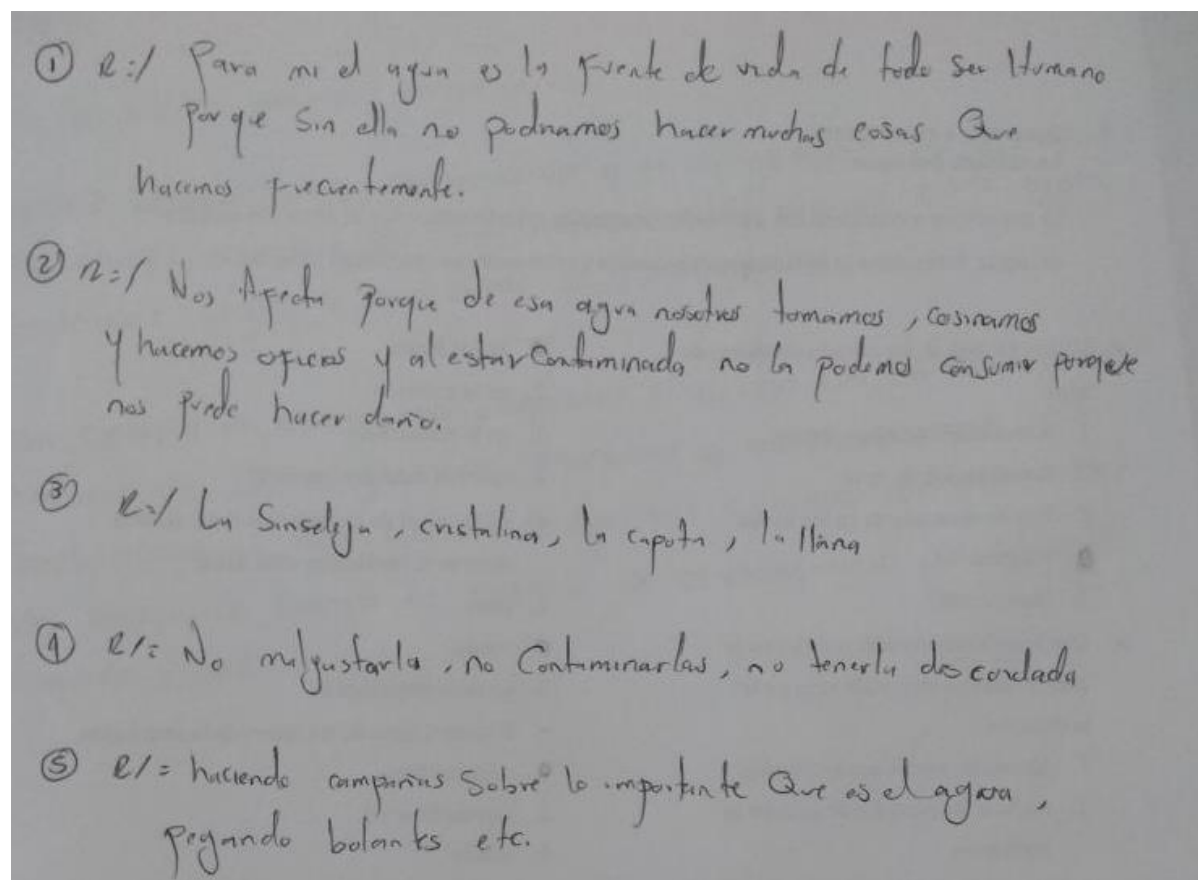 ① R:/ Para mi el agua es la fuente de vida de todo ser Humano
Por que sin ella no podriamos hacer muchas cosas Que
hacemos frecuentemente.
② R:/ Nos Afecta Porque de esa agua nosotros tomamos, cosinamos
Y hacemos oficios y al estar Contaminada no la podemos consumir porque
nos puede hacer daño.
③ R:/ La Sinseleja, cristalina, la capota, la llana
④ R/= No malgastarla, no Contaminarlas, no tenerla descordada
⑤ R/= haciendo campañas Sobre lo importante Que es el agua,
pegando bolantes etc.